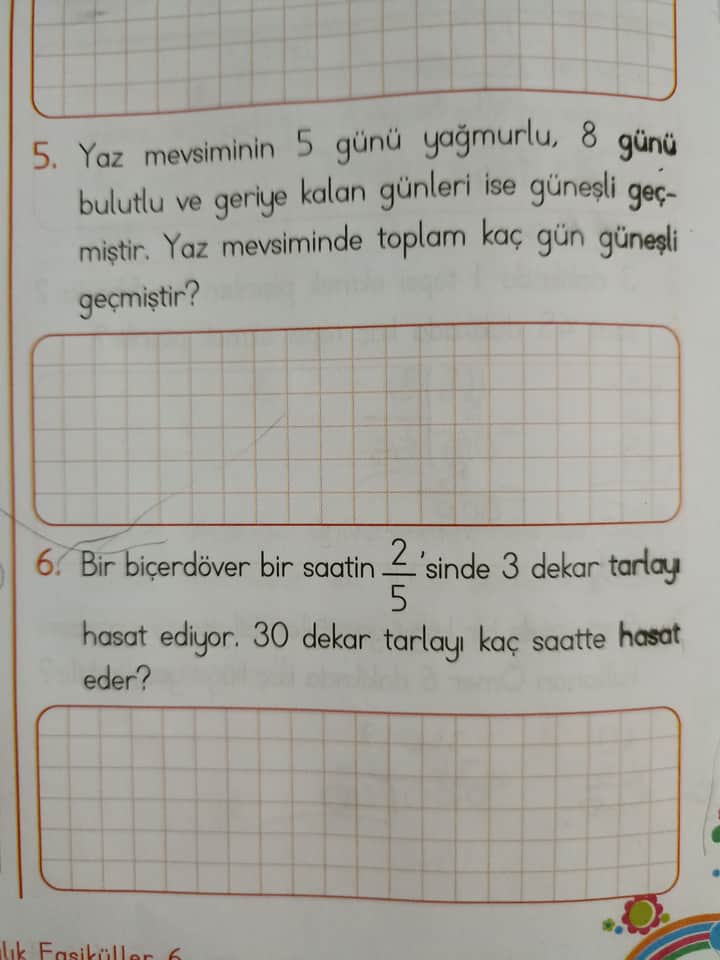 5. Yaz mevsiminin 5 günü yağmurlu, 8 günü
bulutlu ve geriye kalan günleri ise güneşli geç-
miştir. Yaz mevsiminde toplam kaç gün güneşli
geçmiştir?
6. Bir biçerdöver bir saatin 2/5 'sinde 3 dekar tarlayı
hasat ediyor. 30 dekar tarlayı kaç saatte hasat
eder?
Fasiküller 6